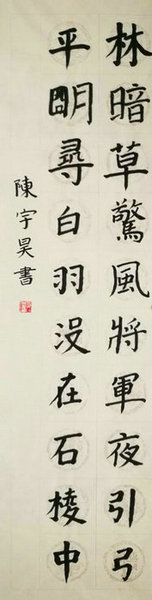 林暗草驚風將軍夜引弓
平明尋白羽没在石棱中
陳宇昊書